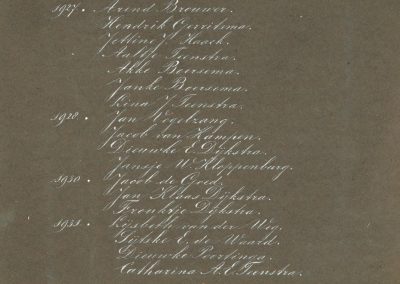 1927. Arend Brouwer.
Hendrik Gerritsma.
Jettine J. Haack.
Aaltje Teenstra.
Akke Boersema.
Janke Boersema.
Lina J. Teenstra.
1928. Jan Vogelzang.
Jacob van Kampen.
Dieuwke E. Dijkstra.
Jansje W. Kloppenburg.
1930. Jacob de Goed.
Jan Klaas Dijkstra.
Froukje Dijkstra.
1931. Lijsbeth van der Weg.
Sijtske E. de Waard.
Dieuwke Poortinga.
Catharina A.E. Teenstra.